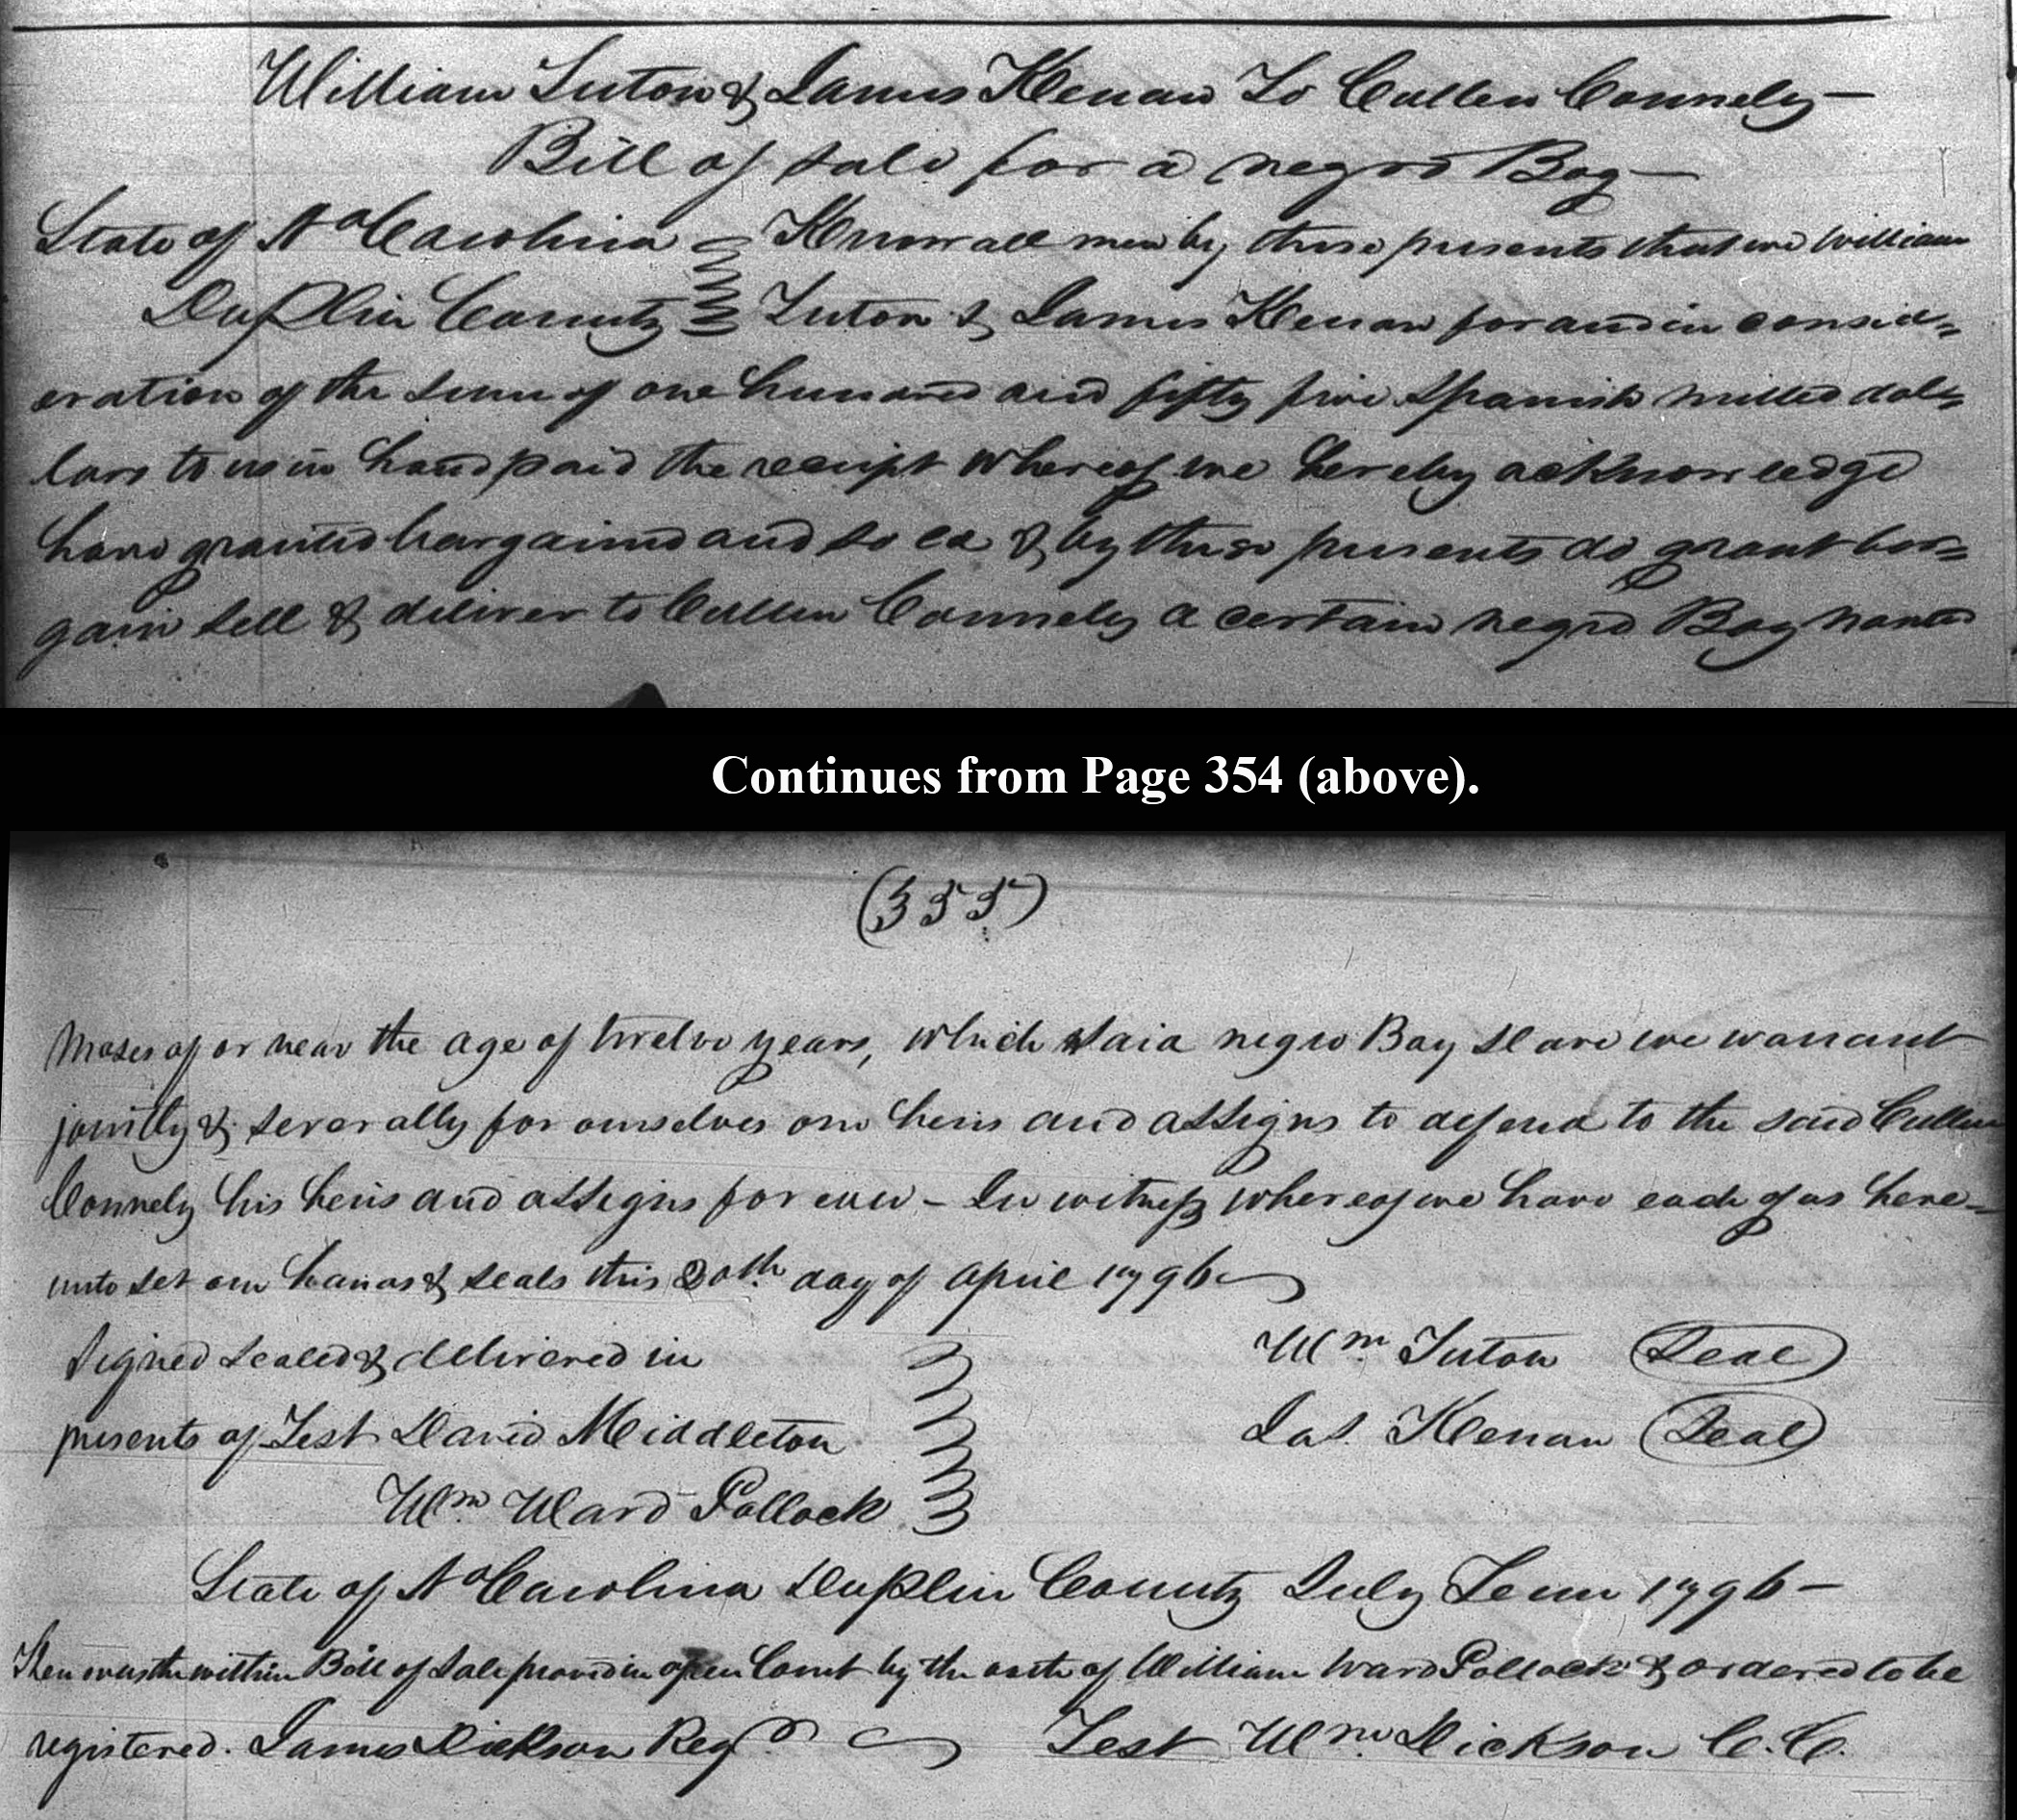 William Suton & James Kenan To Cullen Connely —
Bill of sale for a negro Boy —
State of No Carolina Know all men by these presents that we William
Duplin County Suton & James Kenan for and in consid=
eration of the sum of one hundred and fifty five Spanish milled dol=
lars to us in hand paid the receipt whereof we hereby acknowledge
have granted bargained and sold & by these presents do grant bar=
gain sell & deliver to Cullen Connely a certain negro Boy named
Continues from Page 354 (above).
(355)
Moses of or near the age of twelve years, which said negro Boy Slave we warrant
jointly & severally for ourselves our heirs and assigns to defend to the said Cullen
Connely his heirs and assigns for ever – In witness whereof we have each of us here=
unto set our hands & seals this 20th day of April 1796
Signed sealed & delivered in Wm Suton Seal
presents of Test David Middleton Jas. Kenan Seal
Wm Ward Pollock
State of No Carolina Duplin County July Term 1796 –
Then was the within Bill of Sale proved in open Court by the oath of William Ward Pollock & ordered to be
registered. James Dickson Regr Test Wm Dickson C.C.